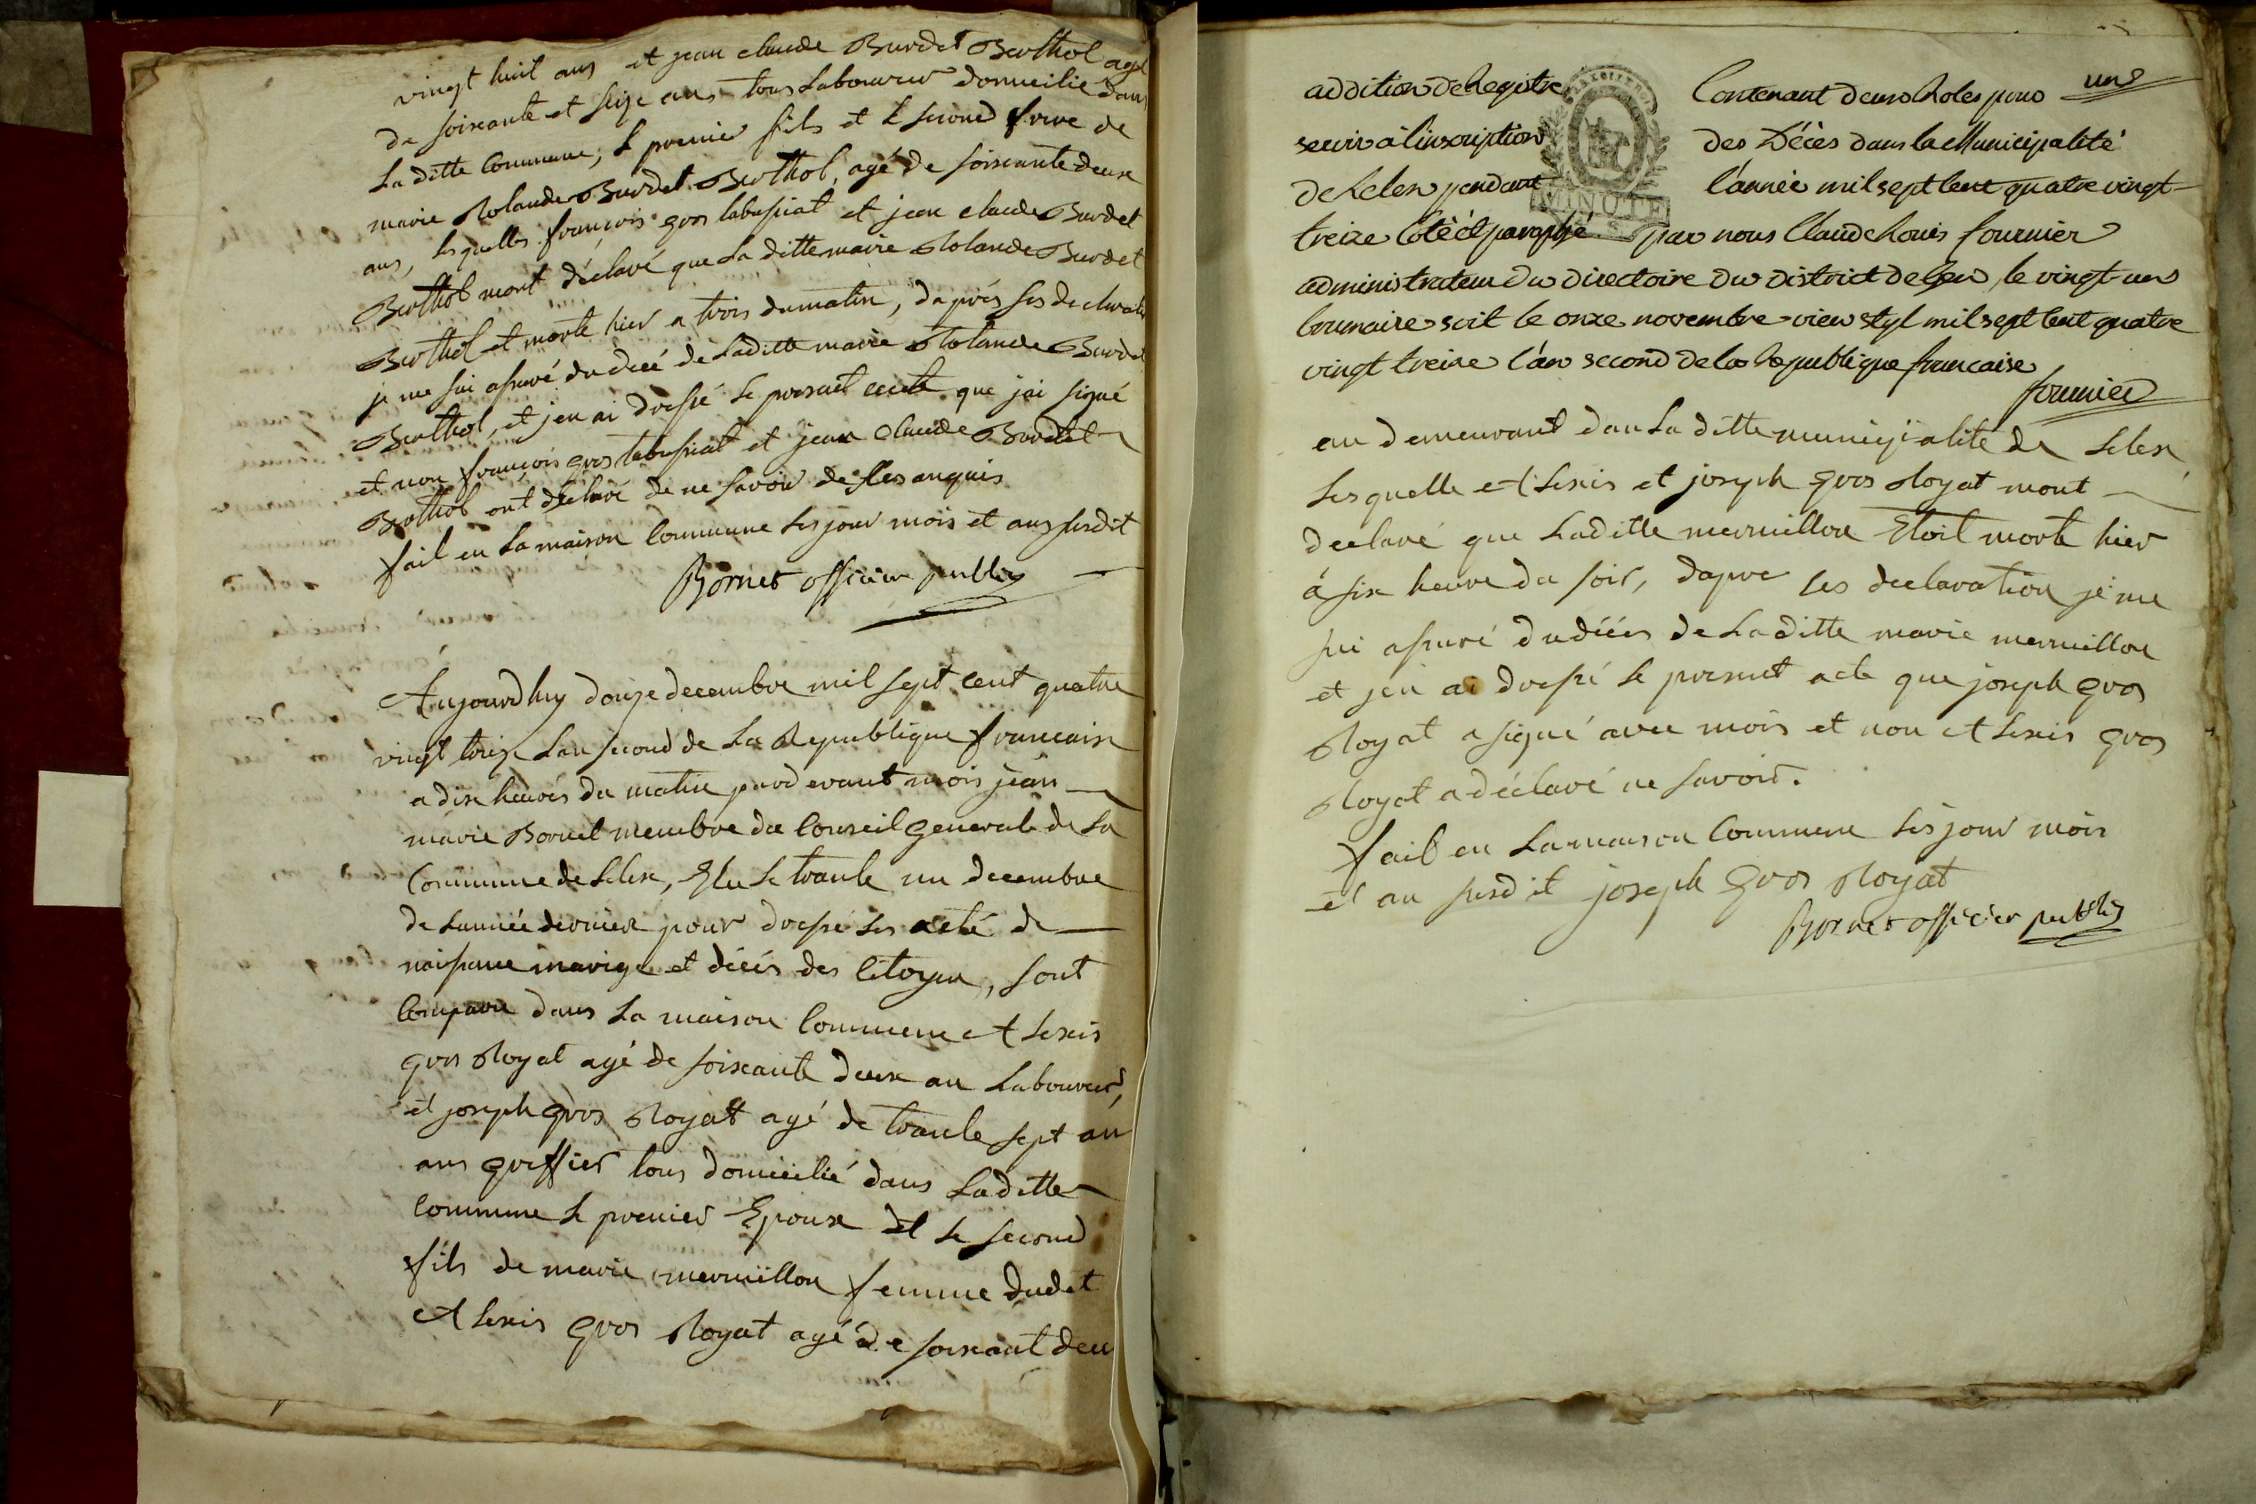 vingt huit ans et jean claude Burdet Berthol agé
de soixante et seize ans tous Laboureur domicilié dans
La ditte Commune, le premier fils et le second frere de
marie Rolande Burdet Berthol, agé de soixante deux
ans, lesquelles françois gros labusiat et jean claude Burdet
Berthol mont déclaré que la ditte marie Rolande Burdet
Berthol et morte hier a trois du matin, daprés ses declaration
je me sui assuré du decé de laditte marie Rolande Burdet
Berthol, et jen ai dressé le present acte que jai signé
et non françois gros labusiat et jean claude Burdet
Berthol ont déclaré de ne savoir de se enquis
fait en la maison Commune les jour mois et ans susdit
Bornet officier public
Aujourdhuy douze decembre mil sept cent quatre
vingt treize lan second de La Republique francaise
a dix heures du matin pard evant mois jean
marie Bornet membre du Conseil generale de La
Commune de Lelex, Elu le trante un decembre
de lannée dernier pour dressé les acté de
naissance mariage et décés des Citoyen, sont
Comparu dans La maison Commune Alexis
gros Royat agé de soixante deux an Laboureur,
et joseph gros Royat agé de trante sept an
ans greffier tous domicilié dans Laditte
Commune le premier Epoux et le second
fils de marie mermillon femme dudit
Alexis gros Royat agé de soixant deux
une
addition de Registre Contenant deux Roles pour
servir a l'inscription des Décès dans la Municipalité
de Lelex pendant l'année mil sept Cent quatre vingt
MINUTE
treize Coté et paraphé par nous Claude Louis fournier
administrateur du directoire du district de Gex, le vingt un
brumaire soit le onze novembre vieu styl mil sept Cent quatre
vingt treize l'an second de la Republique francaise
fournier
an demeurant dan La ditte municipalité de Lelex
Lesquelle Alexis et joseph gros Royat mont
declaré que Laditte mermillon Etoit morte hier
á six heure du soir, dapre ses declaration je me
sui assuré du décés de Laditte marie mermillon
et jen ai dressé le present acte que joseph gros
Royat a signé avec mois et non Alexis gros
Royat a déclaré ne savoir.
fait en La maison Commune les jour mois
et an susdit joseph gros Royat
Bornet officier public